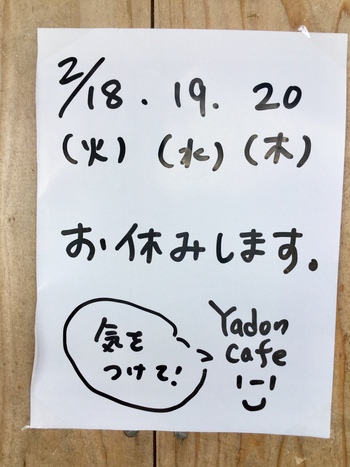 2/18. 19. 20
(火) (水) (木)
お休みします。
気を
つけて!
Yadon
Cafe